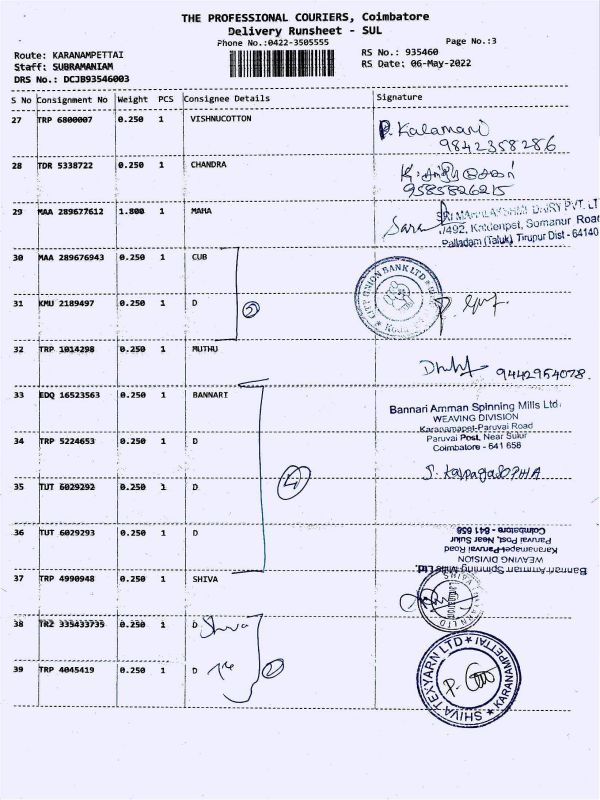 THE PROFESSIONAL COURIERS, Coimbatore
Delivery Runsheet - SUL
Phone No.:0422-3505555
Page No.:3
Route: KARANAMPETTAI
RS No.: 935460
Staff: SUBRAMANIAM
RS Date: 06-May-2022
DRS No.: DCJB93546003
S No Consignment No Weight PCS Consignee Details Signature
27 TRP 6800007 0.250 1 VISHNUCOTTON P. Kalamani
9842358286
28 TDR 5338722 0.250 1 CHANDRA
9585826215
29 MAA 289677612 1.800 1 MAHA
SRI MAHALAKSHMI DAIRY PVT. LT
/492, Katdenpet, Somanur Road
Palladam (Taluk) Tirupur Dist - 64140
30 MAA 289676943 0.250 1 CUB
CITY UNION BANK LTD
31 KMU 2189497 0.250 1 D
32 TRP 1014298 0.250 1 MUTHU 9442954078
33 EDQ 16523563 0.250 1 BANNARI
Bannari Amman Spinning Mills Ltd
WEAVING DIVISION
Karanamapet-Paruvai Road
Paruvai Post, Near Sulur
Coimbatore - 641 658
34 TRP 5224653 0.250 1 D
35 TUT 6029292 0.250 1 D
4
36 TUT 6029293 0.250 1 D
Bannari Amman Spinning Mills Ltd.
WEAVING DIVISION
Karanamapet-Paruvai Road
Paruvai Post, Near Sulur
Coimbatore - 641 658
37 TRP 4990948 0.250 1 SHIVA
38 TRZ 335433735 0.250 1 D Shiva
39 TRP 4045419 0.250 1 D
SHIVA TEXYARN LTD ★ KARANAMPETTAI ★